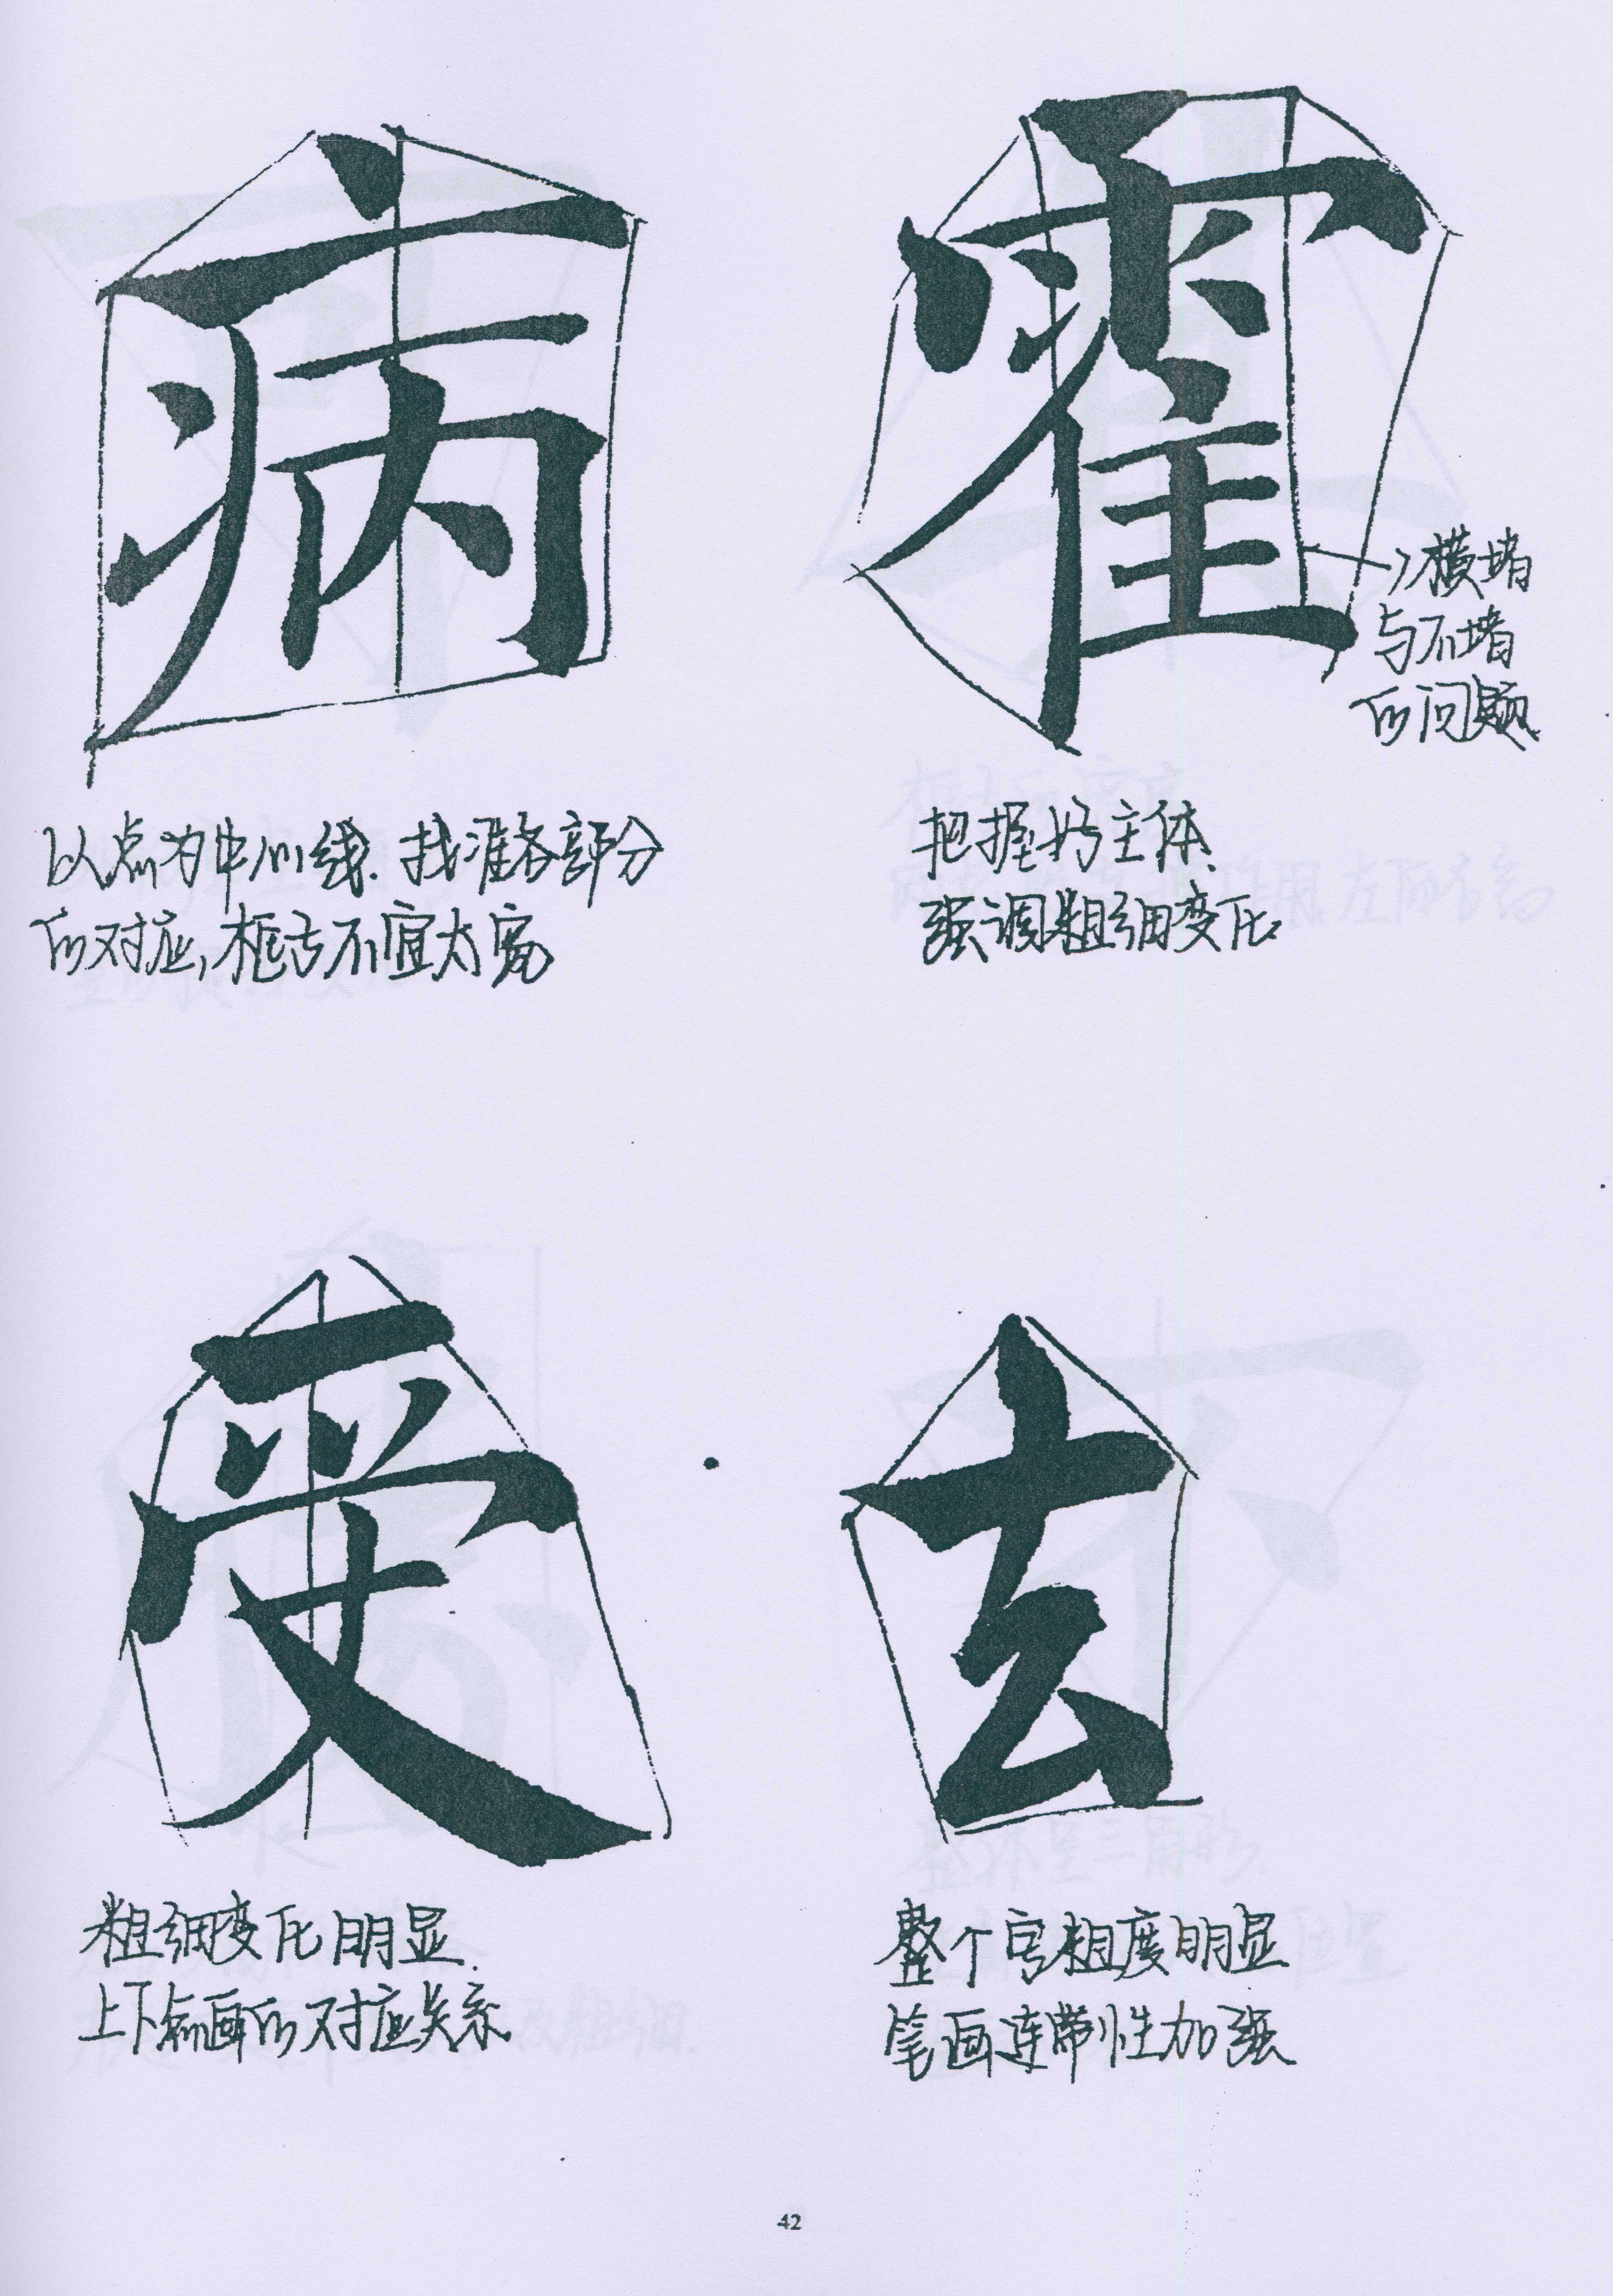 病
霍
横堵
与不堵
的问题
以点为中心线.找准各部分
的对应,框古不宜太宽
把握好主体.
强调粗细变化.
受
玄
粗细变化明显.
上下点画的对应关系
整个字粗度明显
笔画连带性加强
42